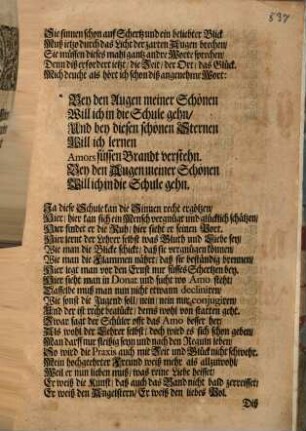 897
Sie sinnen schon auf Schertz und ein beliebter Blick
Muß ietzo durch das Licht der zarten Augen brechen/
Sie müssen dieses mahl gantz andre Worte sprechen/
Denn diß erfordert jetzt/ die Zeit/ der Ort/ das Glück.
Mich deucht als hört ich schon diß angenehme Wort:
Bey den Augen meiner Schönen
Will ich in die Schule gehn/
Und bey diesen schönen Sternen
Will ich lernen
Amors süssen Brandt verstehn.
Bey den Augen meiner Schönen
Will ich in die Schule gehn.
Ja diese Schule kan die Sinnen recht ergötzen/
Hier/ hier kan sich ein Mensch vergnügt und glücklich schätzen/
Hier findet er die Ruh/ hier sieht er seinen Port.
Hier lernt der Lehrer selbst was Gluth und Liebe sey/
Wie man die Blicke schickt/ daß sie vergnügen können
Wie man die Flammen nährt/ daß sie beständig brennen
Hier legt man vor den Ernst nur süsses Schertzen bey.
Hier sieht man in Donat und sucht wo Amo steht/
Dasselbe muß man nun nicht etwann decliniren/
Wie sonst die Jugend soll/ nein/ nein mit conjugiren/
Und der ist recht beglückt/ dems wohl von statten geht.
Zwar sagt der Schüler offt das Amo besser her/
Als wohl der Lehrer selbst/ doch wird es sich schon geben/
Man darff nur fleißig seyn und nach den Reguln leben/
So wird die Praxis auch mit Zeit und Glück nicht schwehr.
Mein hochgeehrter Freund weiß mehr als allzuwohl/
Weil er nun lieben muß/ was reine Liebe heisset/
Er weiß die Kunst/ daß auch das Band nicht bald zerreisset/
Er weiß den Angelstern/ Er weiß den liebes Pol.
Diß